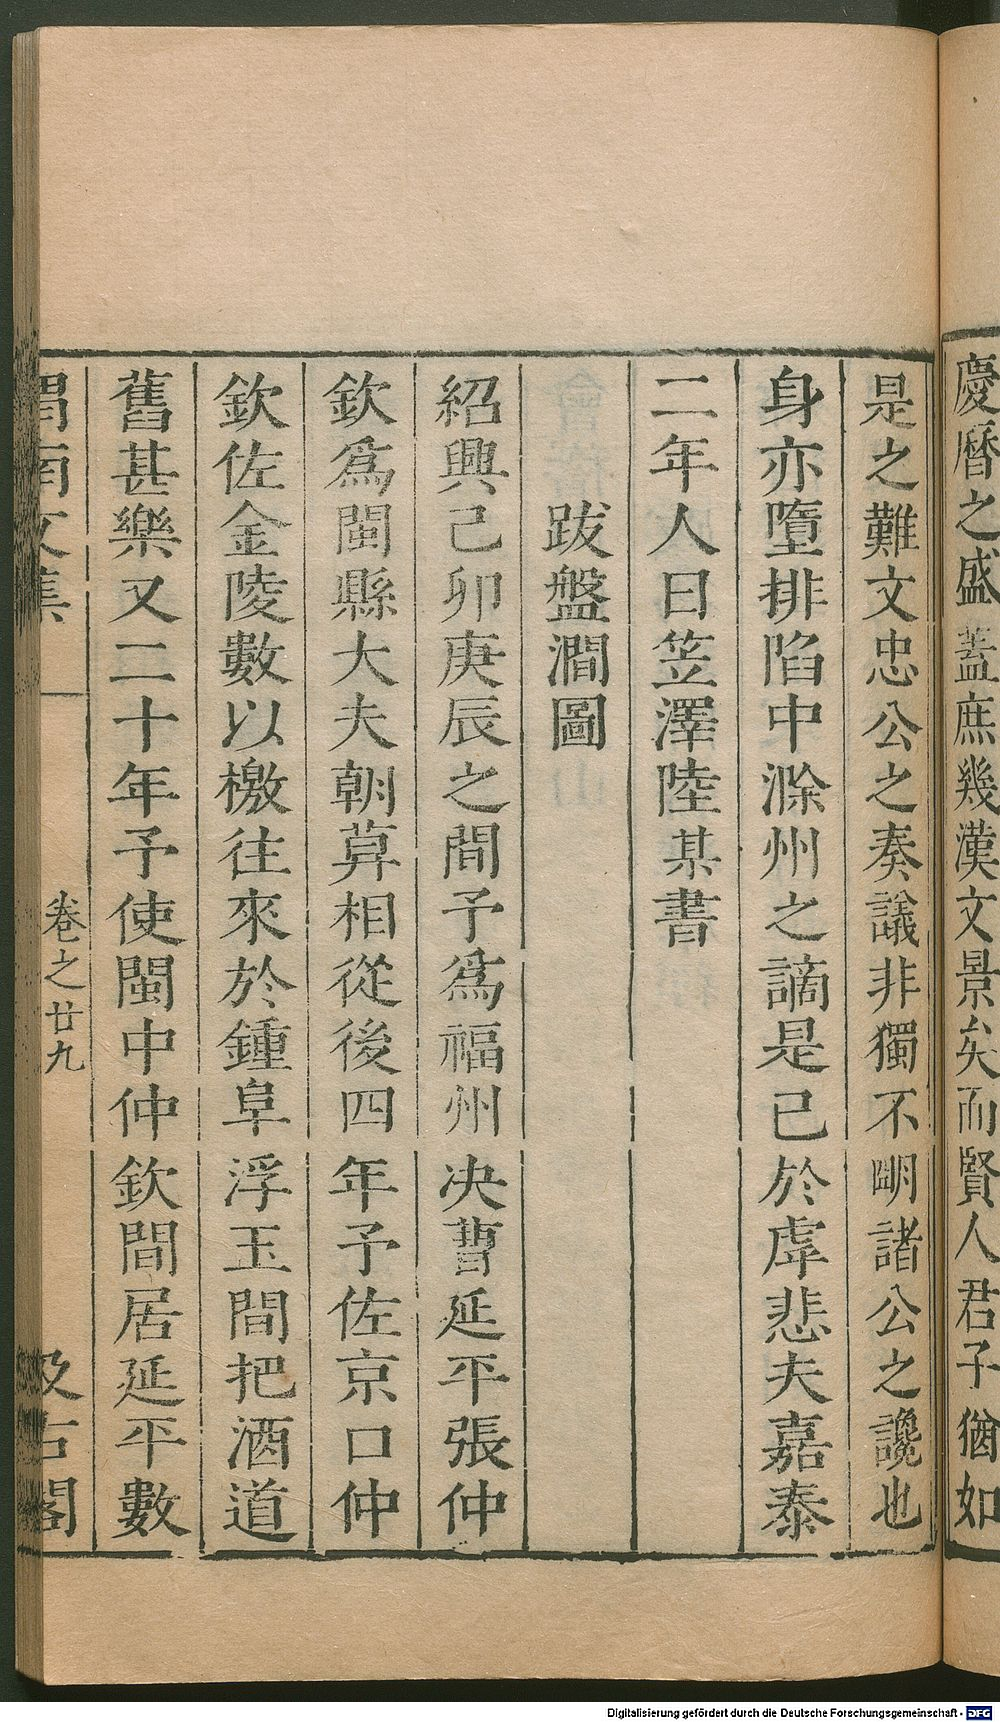 慶曆之盛蓋庶幾漢文景矣而賢人君子猶如
是之難文忠公之奏議非獨不明諸公之讒也
身亦墮排陷中滁州之謫是已於虖悲夫嘉泰
二年人日笠澤陸某書
跋盤澗圖
紹興己卯庚辰之間予爲福州决曹延平張仲
欽爲閩縣大夫朝莫相從後四年予佐京口仲
欽佐金陵數以檄往來於鍾阜浮玉間把酒道
舊甚樂又二十年予使閩中仲欽間居延平數
渭南文集 卷之廿九 汲古閣
Digitalisierung gefördert durch die Deutsche Forschungsgemeinschaft - DFG